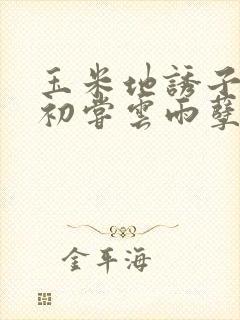 玉米地誘子
初嘗雲雨孽
金平海